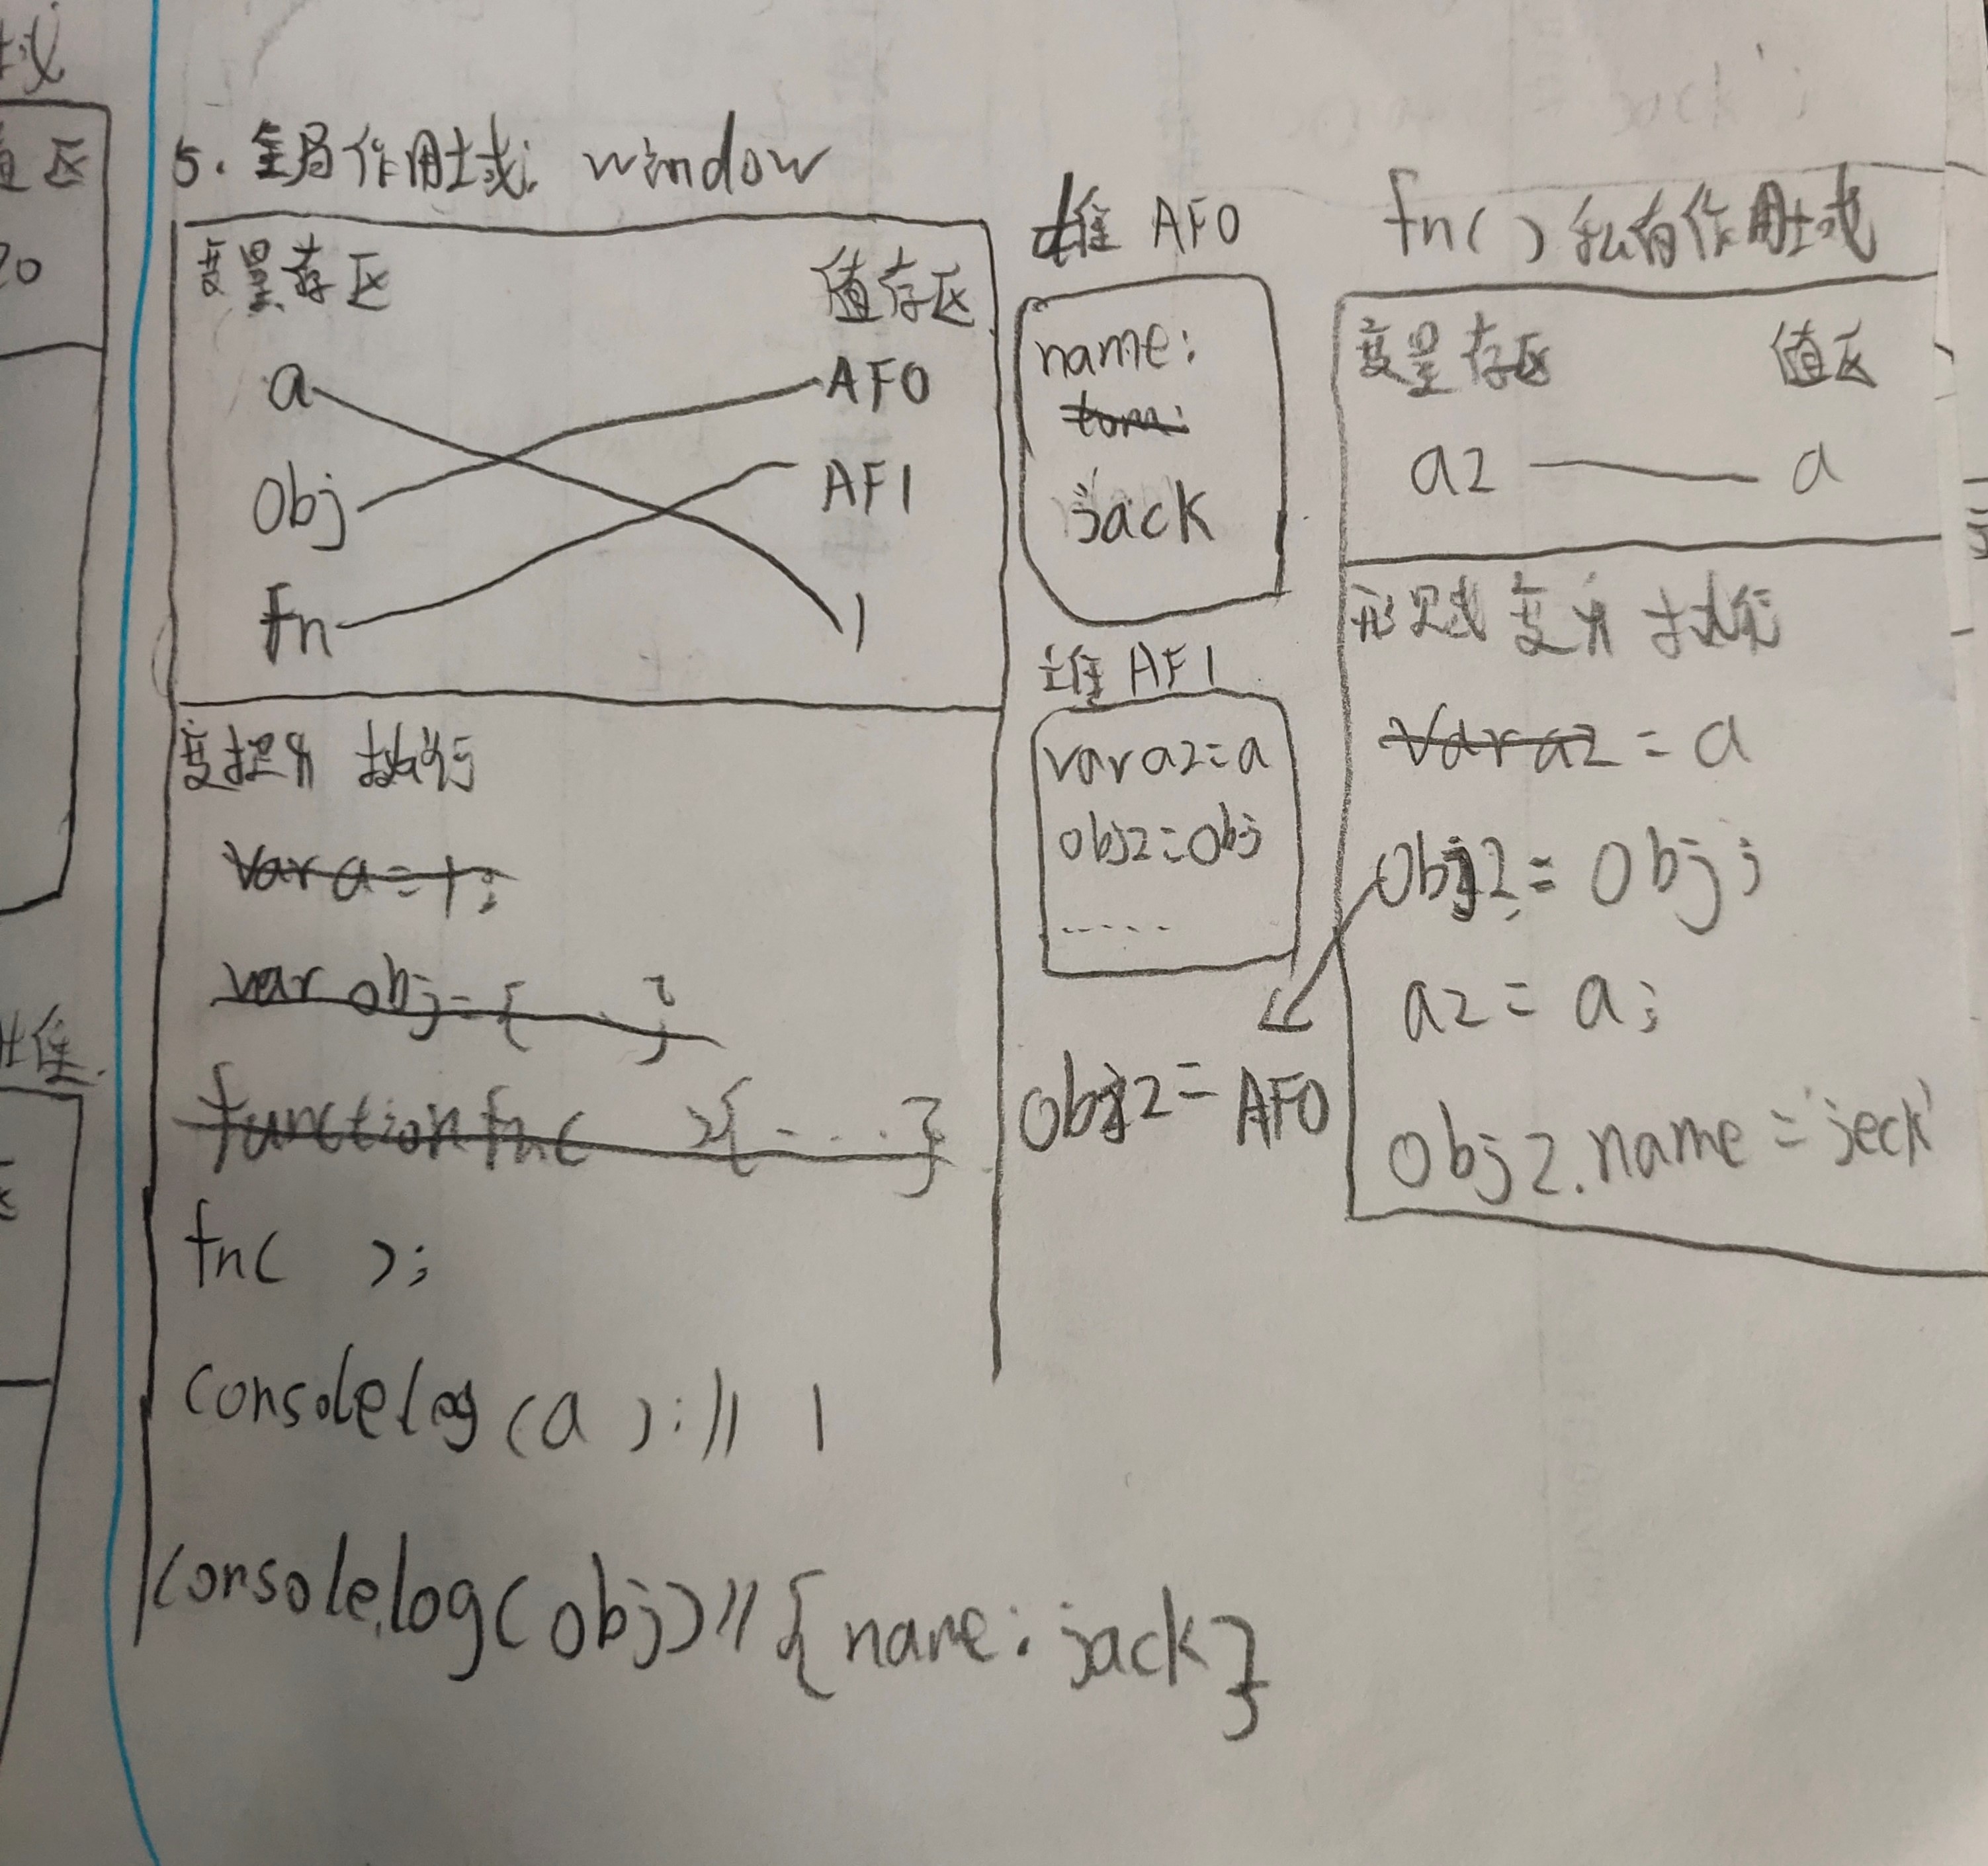 5. 全局作用域: window
变量存区 值存区
a AF0
obj AF1
fn 1
变提升 执行
var a = 1;
var obj = { }
function fn( ){ .... }
fn( );
console.log(a); // 1
console.log(obj) // {name: jack}
堆 AF0
name:
tom
jack
堆 AF1
var a2 = a
obj2 = obj
.....
obj2 = AF0
fn( ) 私有作用域
变量存区 值区
a2 a
形赋 变升 执行
var a2 = a
obj2 = obj;
a2 = a;
obj2.name = 'jeck'
域
值区
20
堆